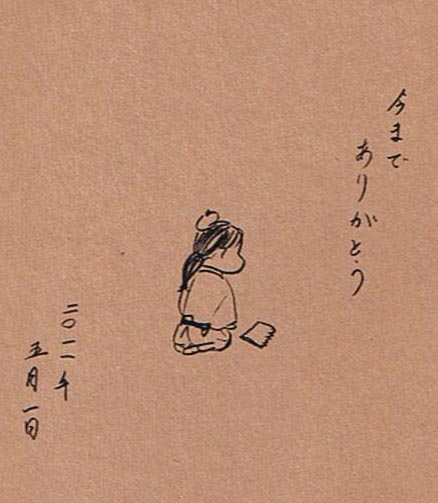 今まで
ありがとう
二〇一一年
五月一日